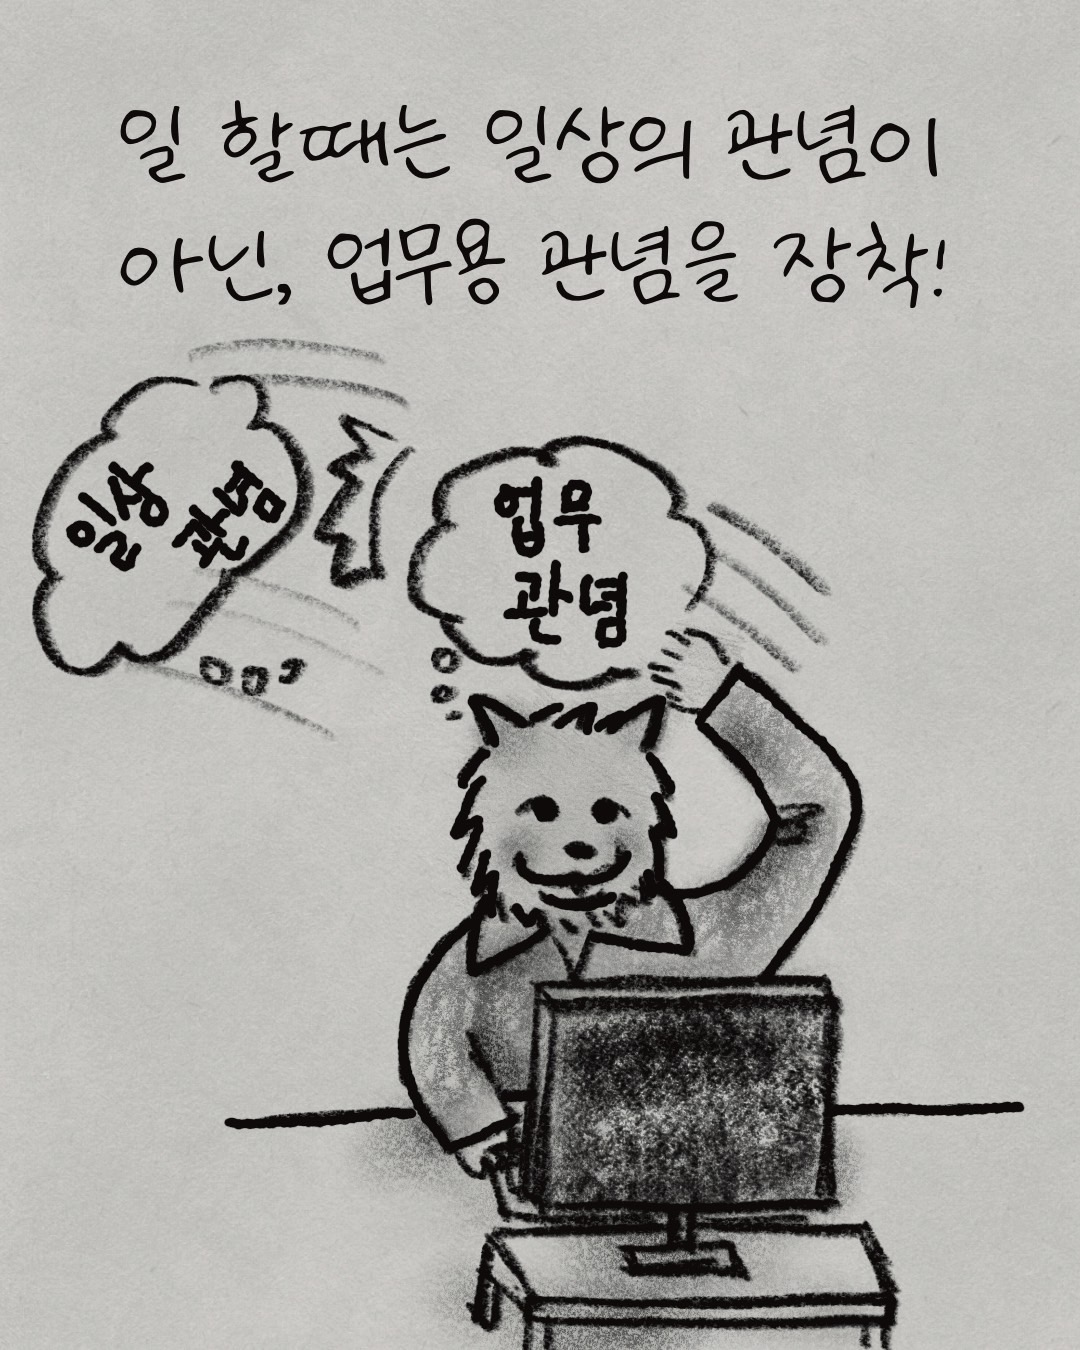 일 할때는 일상의 관념이
아닌, 업무용 관념을 장착!
일상 관념
업무
관념